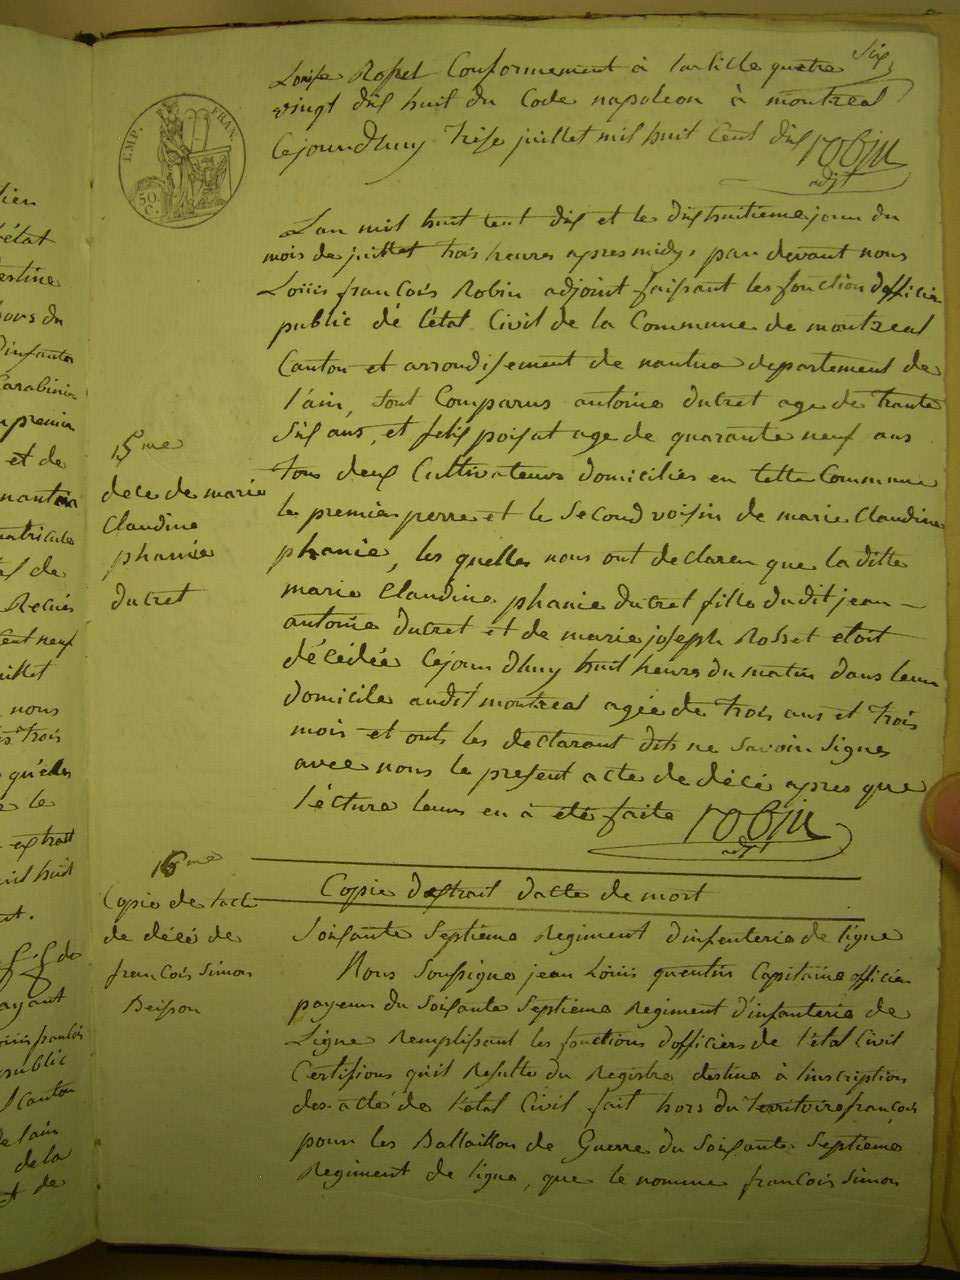 Six
Louise Rosset Conformement à larticle quatre
vingt dix huit du Code napoleon à montreal
Cejourdhuy treise juillet mil huit Cent dix robin
adjt
EMP. FRAN.
50 C.
Lan mil huit cent dix et le dixhuitieme jour du
mois de juillet trois heures apres midy, par devant nous
Louis francois Robin adjoint faisant les fonction dofficier
public dé l'état Civil de la Commune de montreal
Canton et arrondisement de nantua departement de
l'ain, sont Comparus antoine ducret age de trante
six ans, et felix poisat age de quarante neuf ans
tous deux Cultivateurs domicilies en cette Commune
le premier perre et le Second voisin de marie Claudine
phanie, les quelles nous ont declarer que la ditte
marie Claudine phanie ducret fille dudit jean
antoine ducret et de marie joseph Rosset etoit
décédée Cejour dhuy huit heures du matin dans leur
domicile audit montreal agée de trois ans et trois
mois et onts les declarant dits ne Savoir Signer
avec nous le present acte de décé apres que
lécture leurs en à eté faite robin
adjt
15me
dece de marie
Claudine
phanie
ducret
16me
Copie de lacte
de décé de
francois Simon
Beisson
Copie dextrait dacte de mort
Soixante Septieme Regiment dinfenterie de ligne
Nous Soussigne jean Louis quentin Capitaine officier
payeur du Soixante Septieme Regiment d'infanterie de
Ligne Remplissant les fonctions dofficiers de l'état Civil
Certifions quil Resulte du Registre destine à linscription
des acte de l'etat Civil fait hors du territoire francois
pour les Battaillon de Guerre du Soixante Septieme
Regiment de ligne, que le nomme francois Simon
lien
l'état
destine
hors du
d'infanter
Carabinier
premier
et de
nantua
matricule
de
Recués
Cent neuf
juillet
nous
trois
qu'elles
le
extrait
mil huit
ayant
Louis francois
public
Canton
de lain
de la
et de